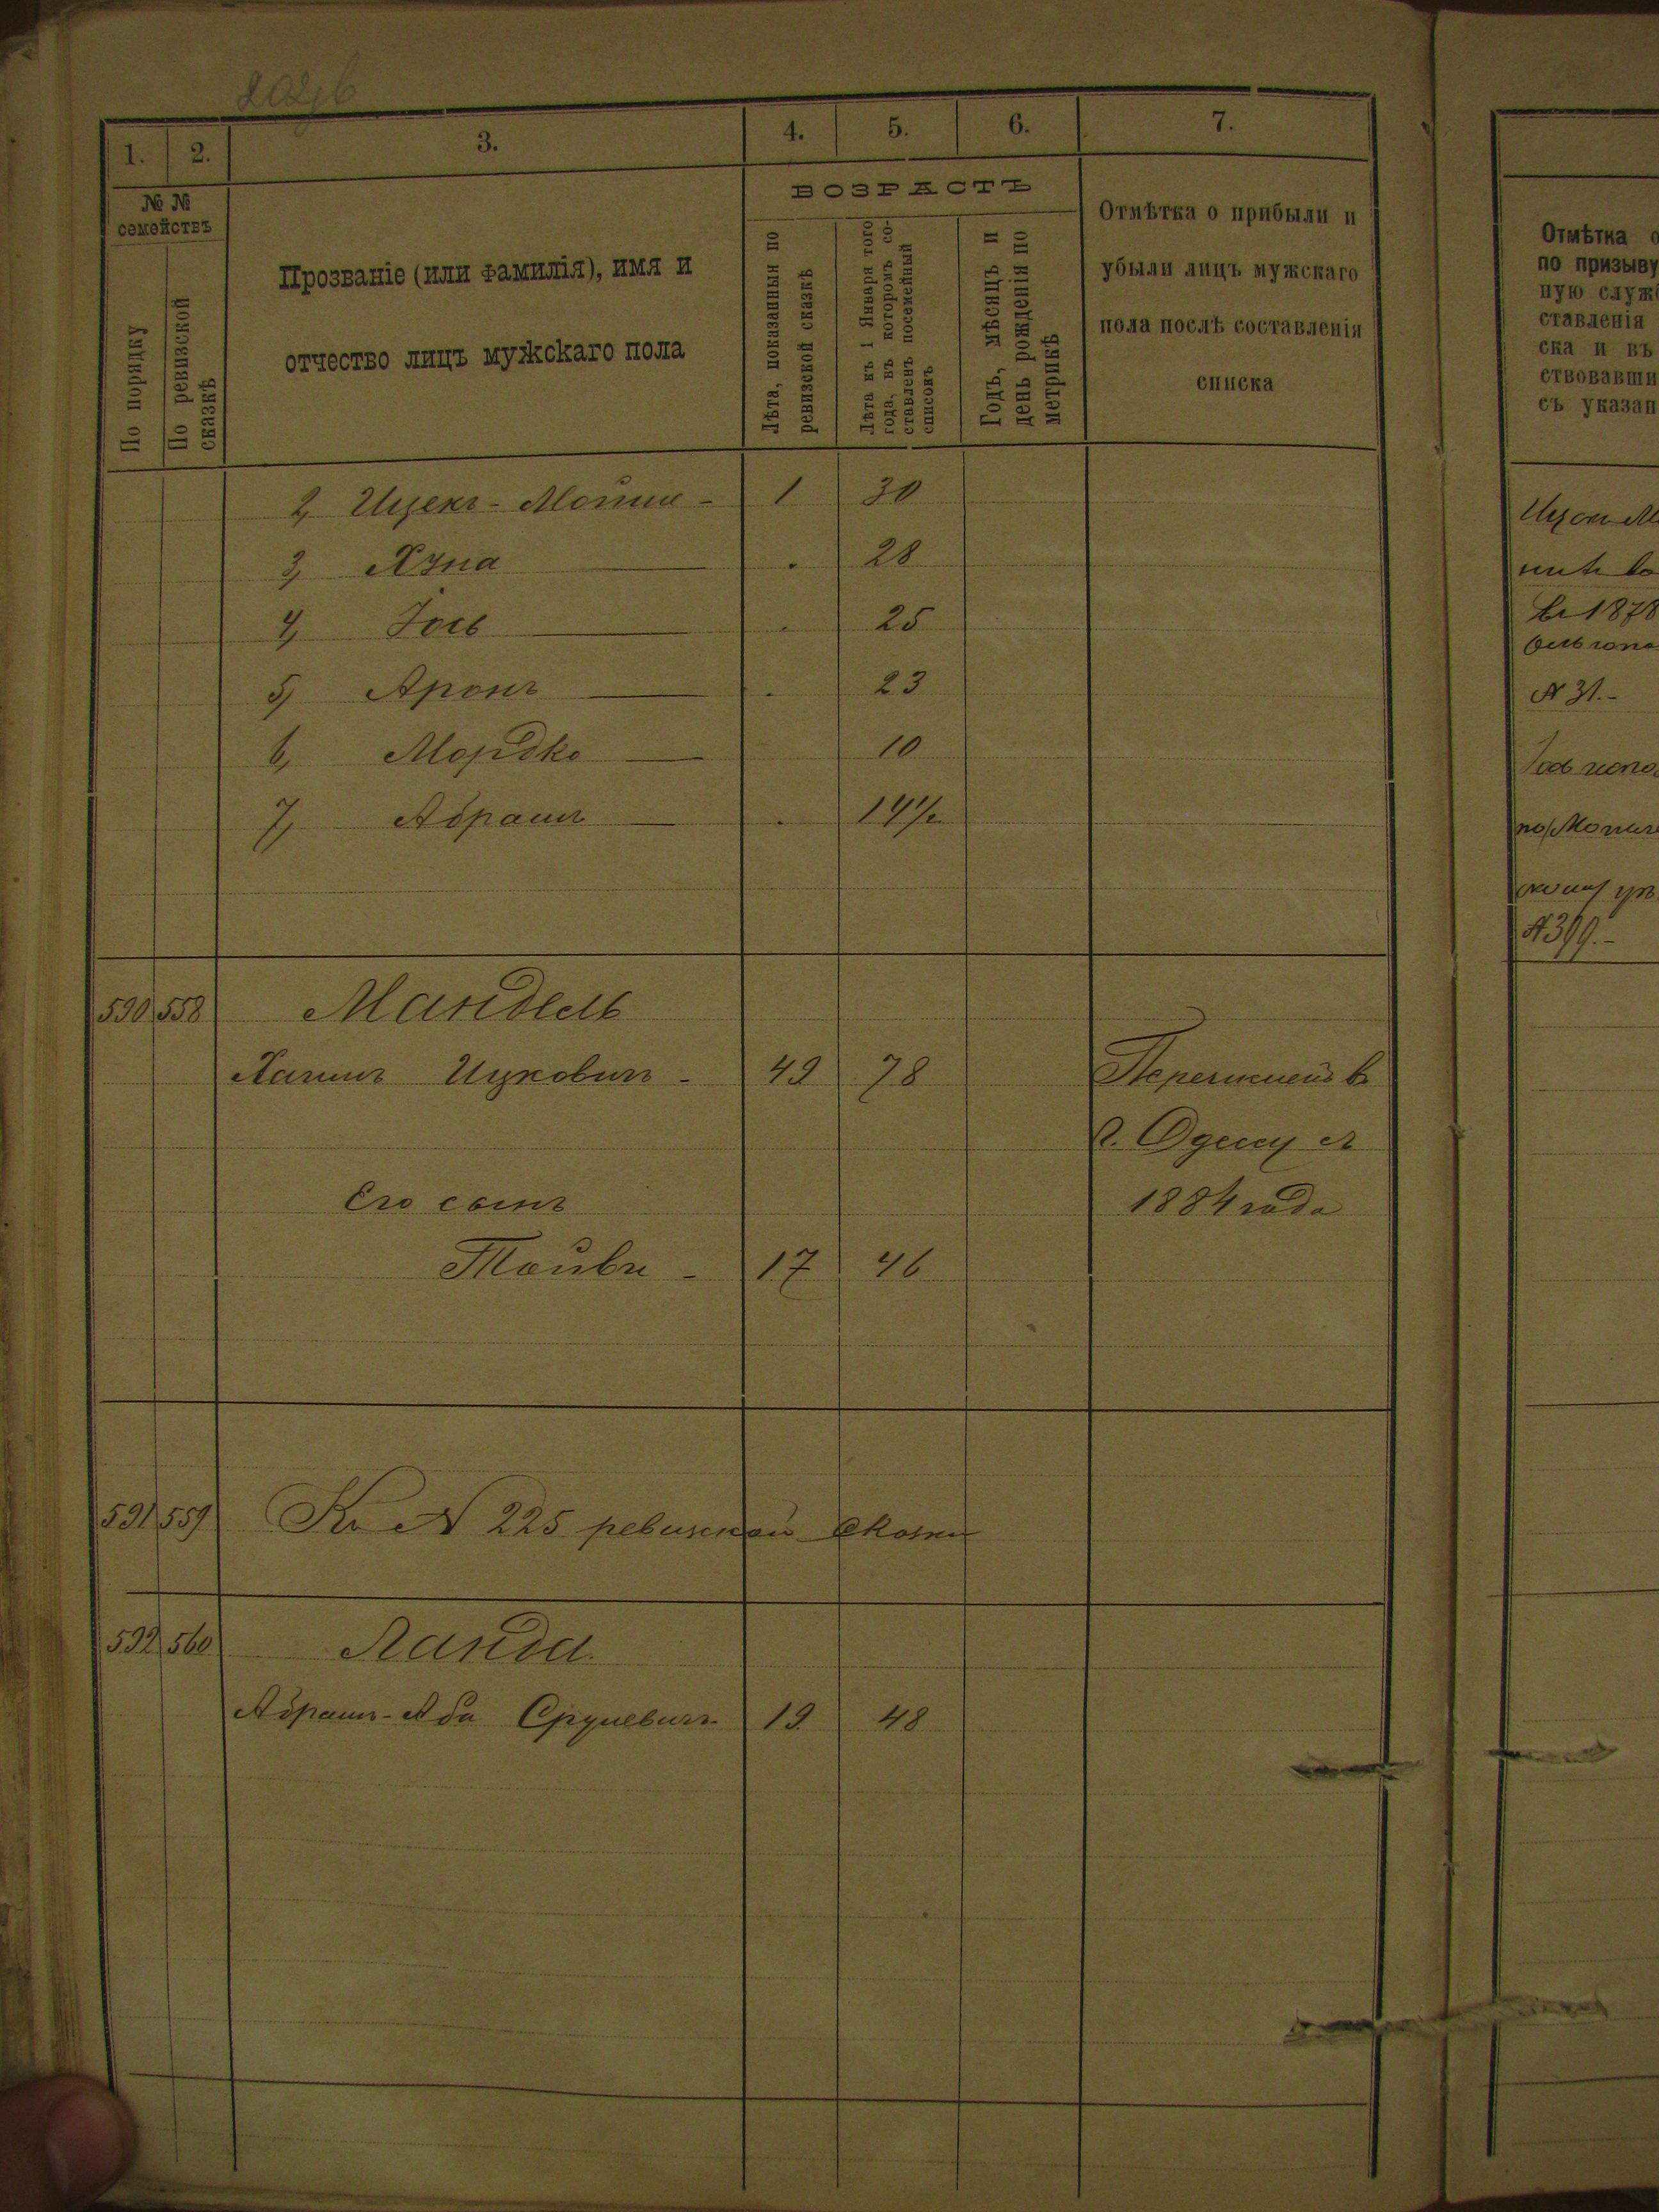 1. 2. 3. 4. 5. 6. 7.
№ № семействъ
По порядку
По ревизской сказкѣ
Прозваніе (или фамилія), имя и
отчество лицъ мужскаго пола
ВОЗРАСТЪ
Лѣта, показанныя по
ревизской сказкѣ
Лѣта къ 1 Января того
года, въ которомъ со-
ставленъ посемейный
списокъ
Годъ, мѣсяцъ и
день рожденія по
метрикѣ
Отмѣтка о прибыли и
убыли лицъ мужскаго
пола послѣ составленія
списка
2, Ицекъ-Мойше - 1 30
3, Хуна — . 28
4, Іось — . 25
5, Аронъ — . 23
6, Мордко — 10
7, Абрамъ — . 14½
590 558 Мандель
Хаимъ Ицковичъ - 49 78 Перечислен въ
г. Одессу съ
Его сынъ 1884 года
Тойви - 17 46
591 559 Къ № 225 ревизской сказки
592 560 Ланда.
Абрамъ-Аба Срулевичъ 19 48
Отмѣтка о
по призыву
ную служб
ставленія
ска и въ
ствовавши
съ указан
въ 1878
№ 31.-
№ 399.-